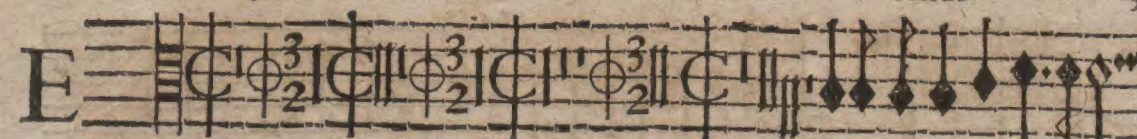 E 3 2 3 2 3 2